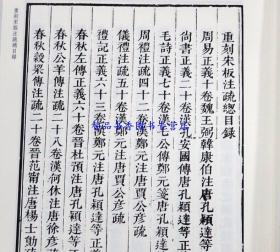 重刻宋板注疏總目錄
周易正義十卷魏王弼韓康伯注唐孔穎達等正
尚書正義二十卷漢孔安國傳唐孔穎達等正
毛詩正義七十卷漢毛公傳鄭元箋唐孔穎達等
周禮注疏四十二卷漢鄭元注唐賈公彥疏
儀禮注疏五十卷漢鄭元注唐賈公彥疏
禮記正義六十三卷漢鄭元注唐孔穎達等正
春秋左傳正義六十卷晉杜預注唐孔穎達等
春秋公羊傳注疏二十八卷漢何休注唐徐彥
春秋穀梁傳注疏二十卷晉范甯注唐楊士勛
重刻宋板注疏總目錄